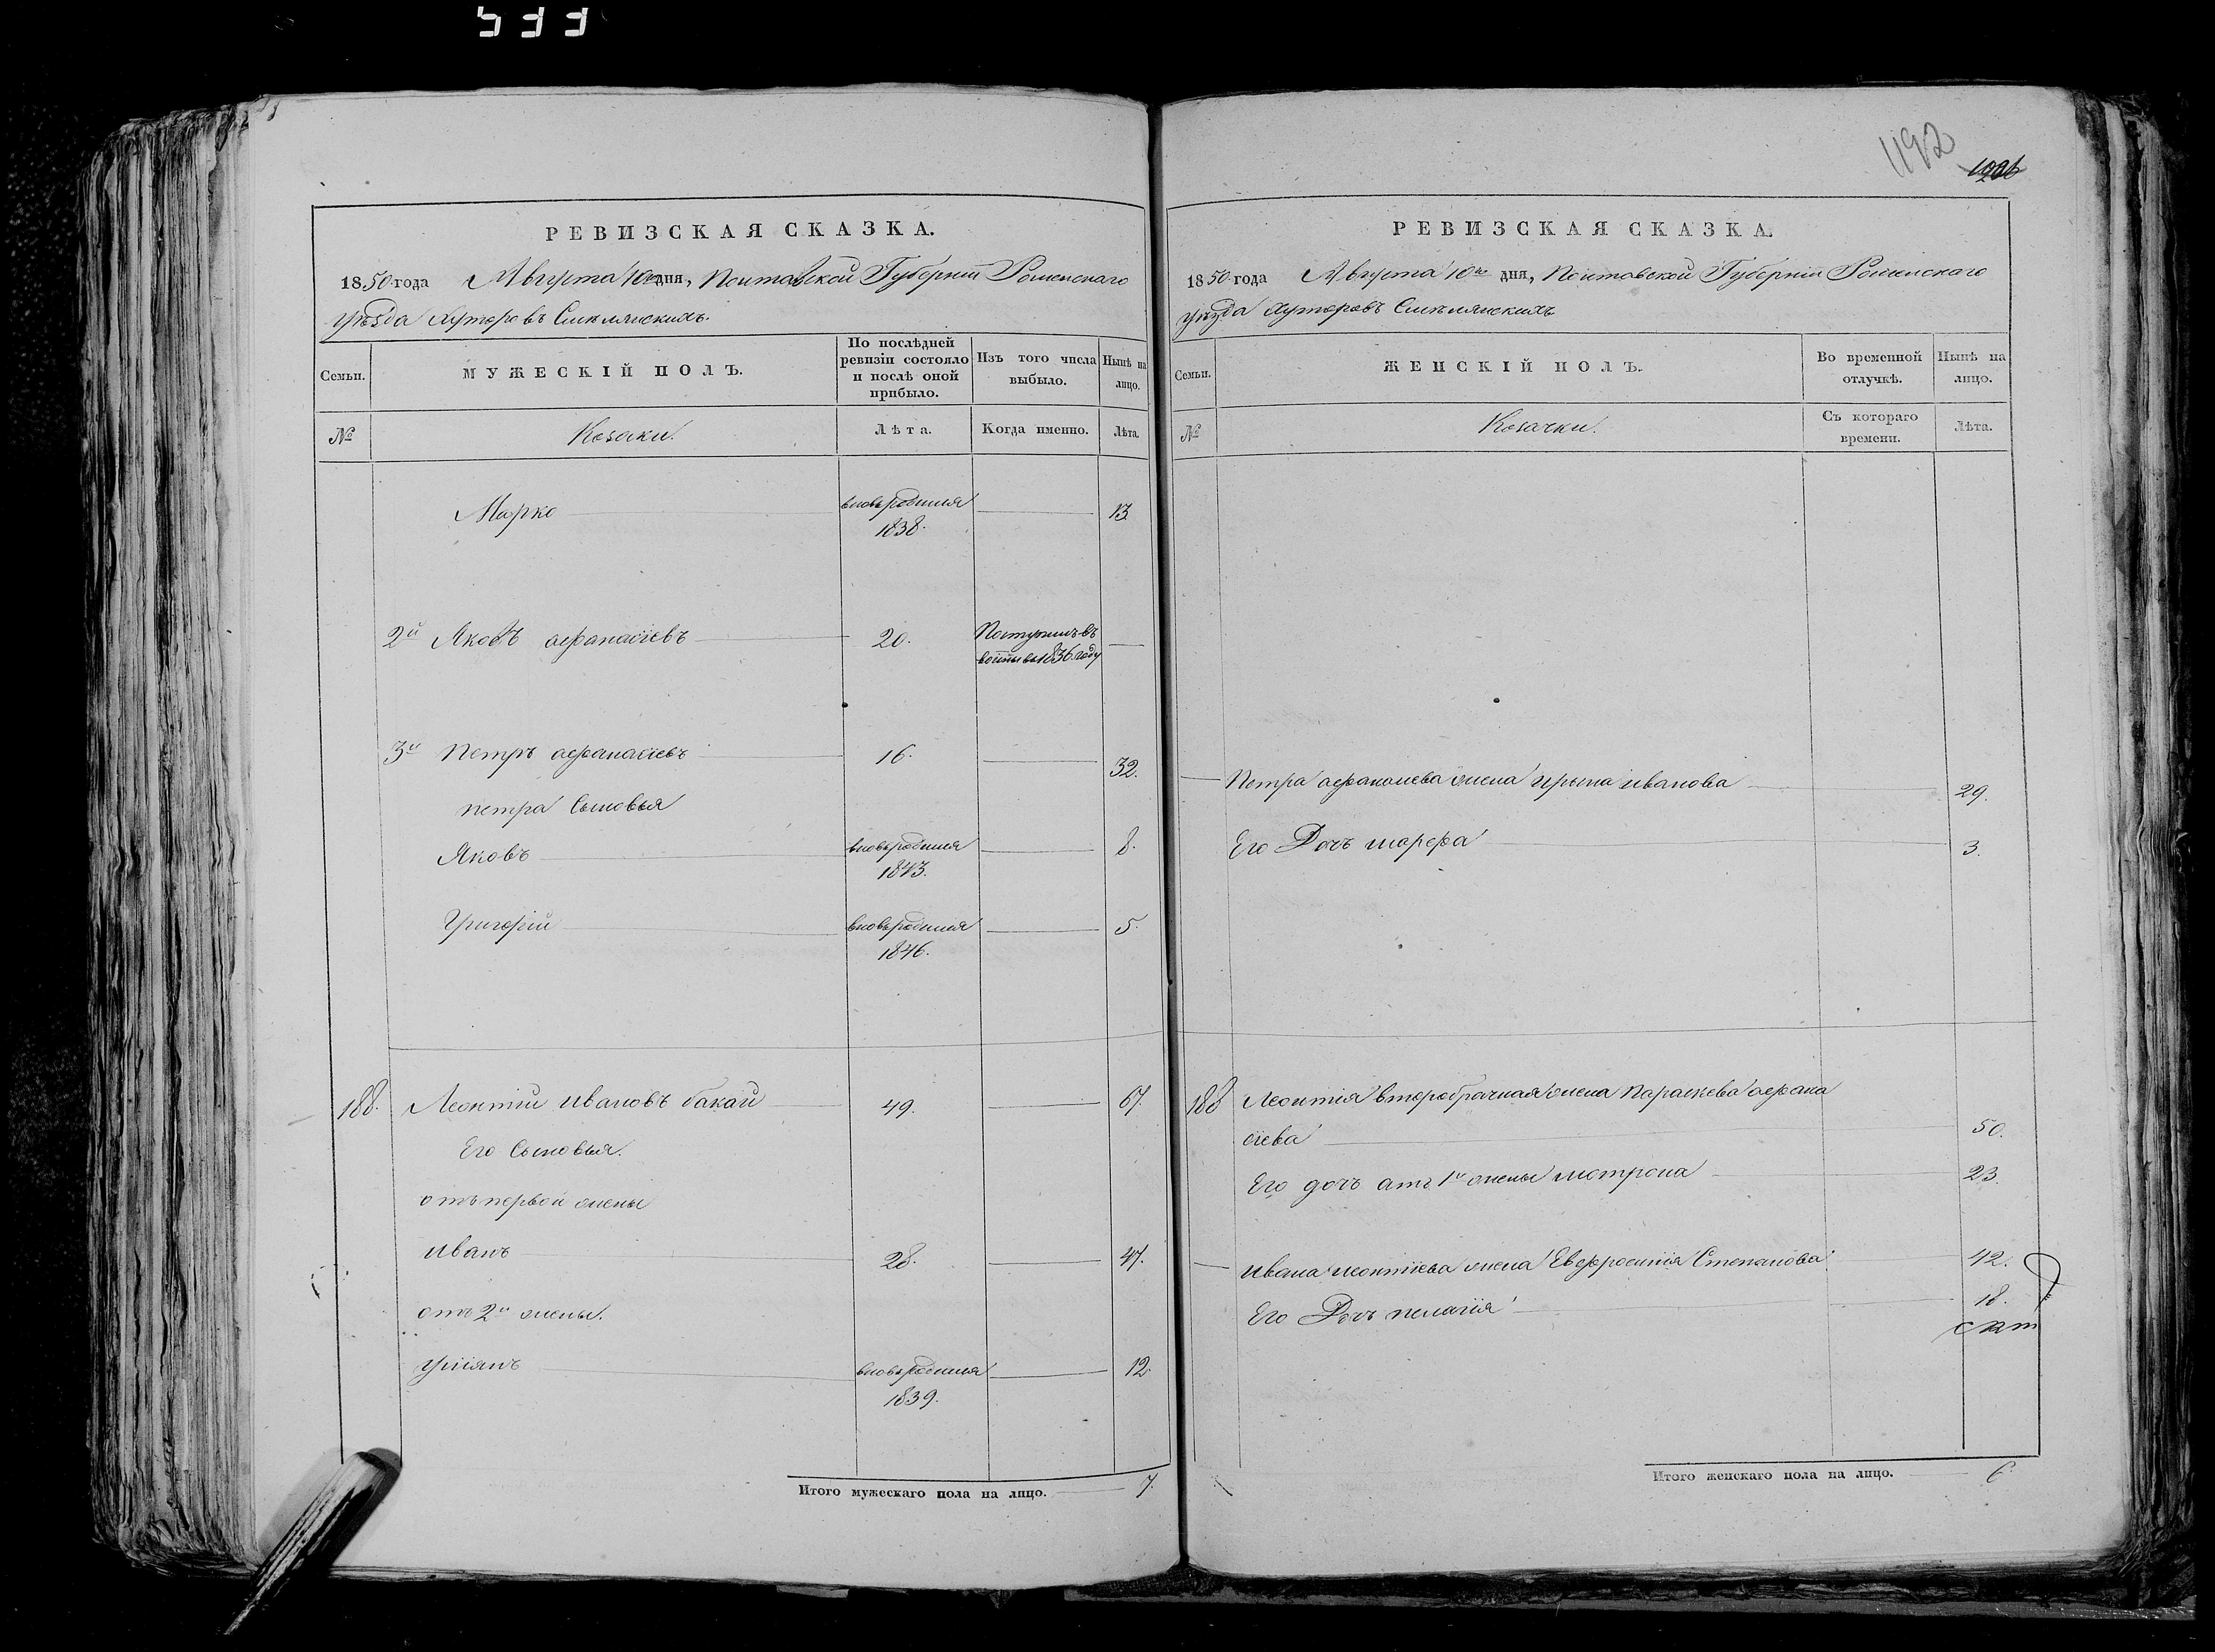 533
1192
1926
РЕВИЗСКАЯ СКАЗКА.
1850 года Августа 10го дня, Полтавской Губерніи Роменскаго
уѣзда Хуторовъ Смѣлянскихъ.
Семьи.
МУЖЕСКІЙ ПОЛЪ.
По послѣдней ревизіи состояло и послѣ оной прибыло.
Изъ того числа выбыло.
Нынѣ на лицо.
№
Козаки.
Лѣта.
Когда именно.
Лѣта.
Марко вновьродился 1838. 13
2й Яковъ афанасіевъ 20. Поступилъ въ 1836 году
3й Петръ афанасіевъ 16. 32.
петра Сыновья
Яковъ вновьродился 1843. 8.
Григорій вновьродился 1846. 5.
188. Леонтій ивановъ бакай 49. 67.
Его Сыновья.
отъ первой жены
иванъ 28. 47.
отъ 2й жены.
уліянъ вновьродился 1839. 12
Итого мужескаго пола на лицо. 7.
РЕВИЗСКАЯ СКАЗКА.
1850 года Августа 10го дня, Полтавской Губерніи Роменскаго
уѣзда Хуторовъ Смѣлянскихъ
Семьи.
ЖЕНСКІЙ ПОЛЪ.
Во временной отлучкѣ.
Нынѣ на лицо.
№
Козачки.
Съ котораго времени.
Лѣта.
Петра афанасиева жена ирына иванова 29.
Его Дочъ марфа 3.
188 Леонтія второбрачная жена параскева афана
сіева 50.
Его дочъ отъ 1й жены мотрона 23.
ивана леонтіева жена Евфросинія Степанова 42.
Его Дочъ пелагія 18.
Итого женскаго пола на лицо. 6.